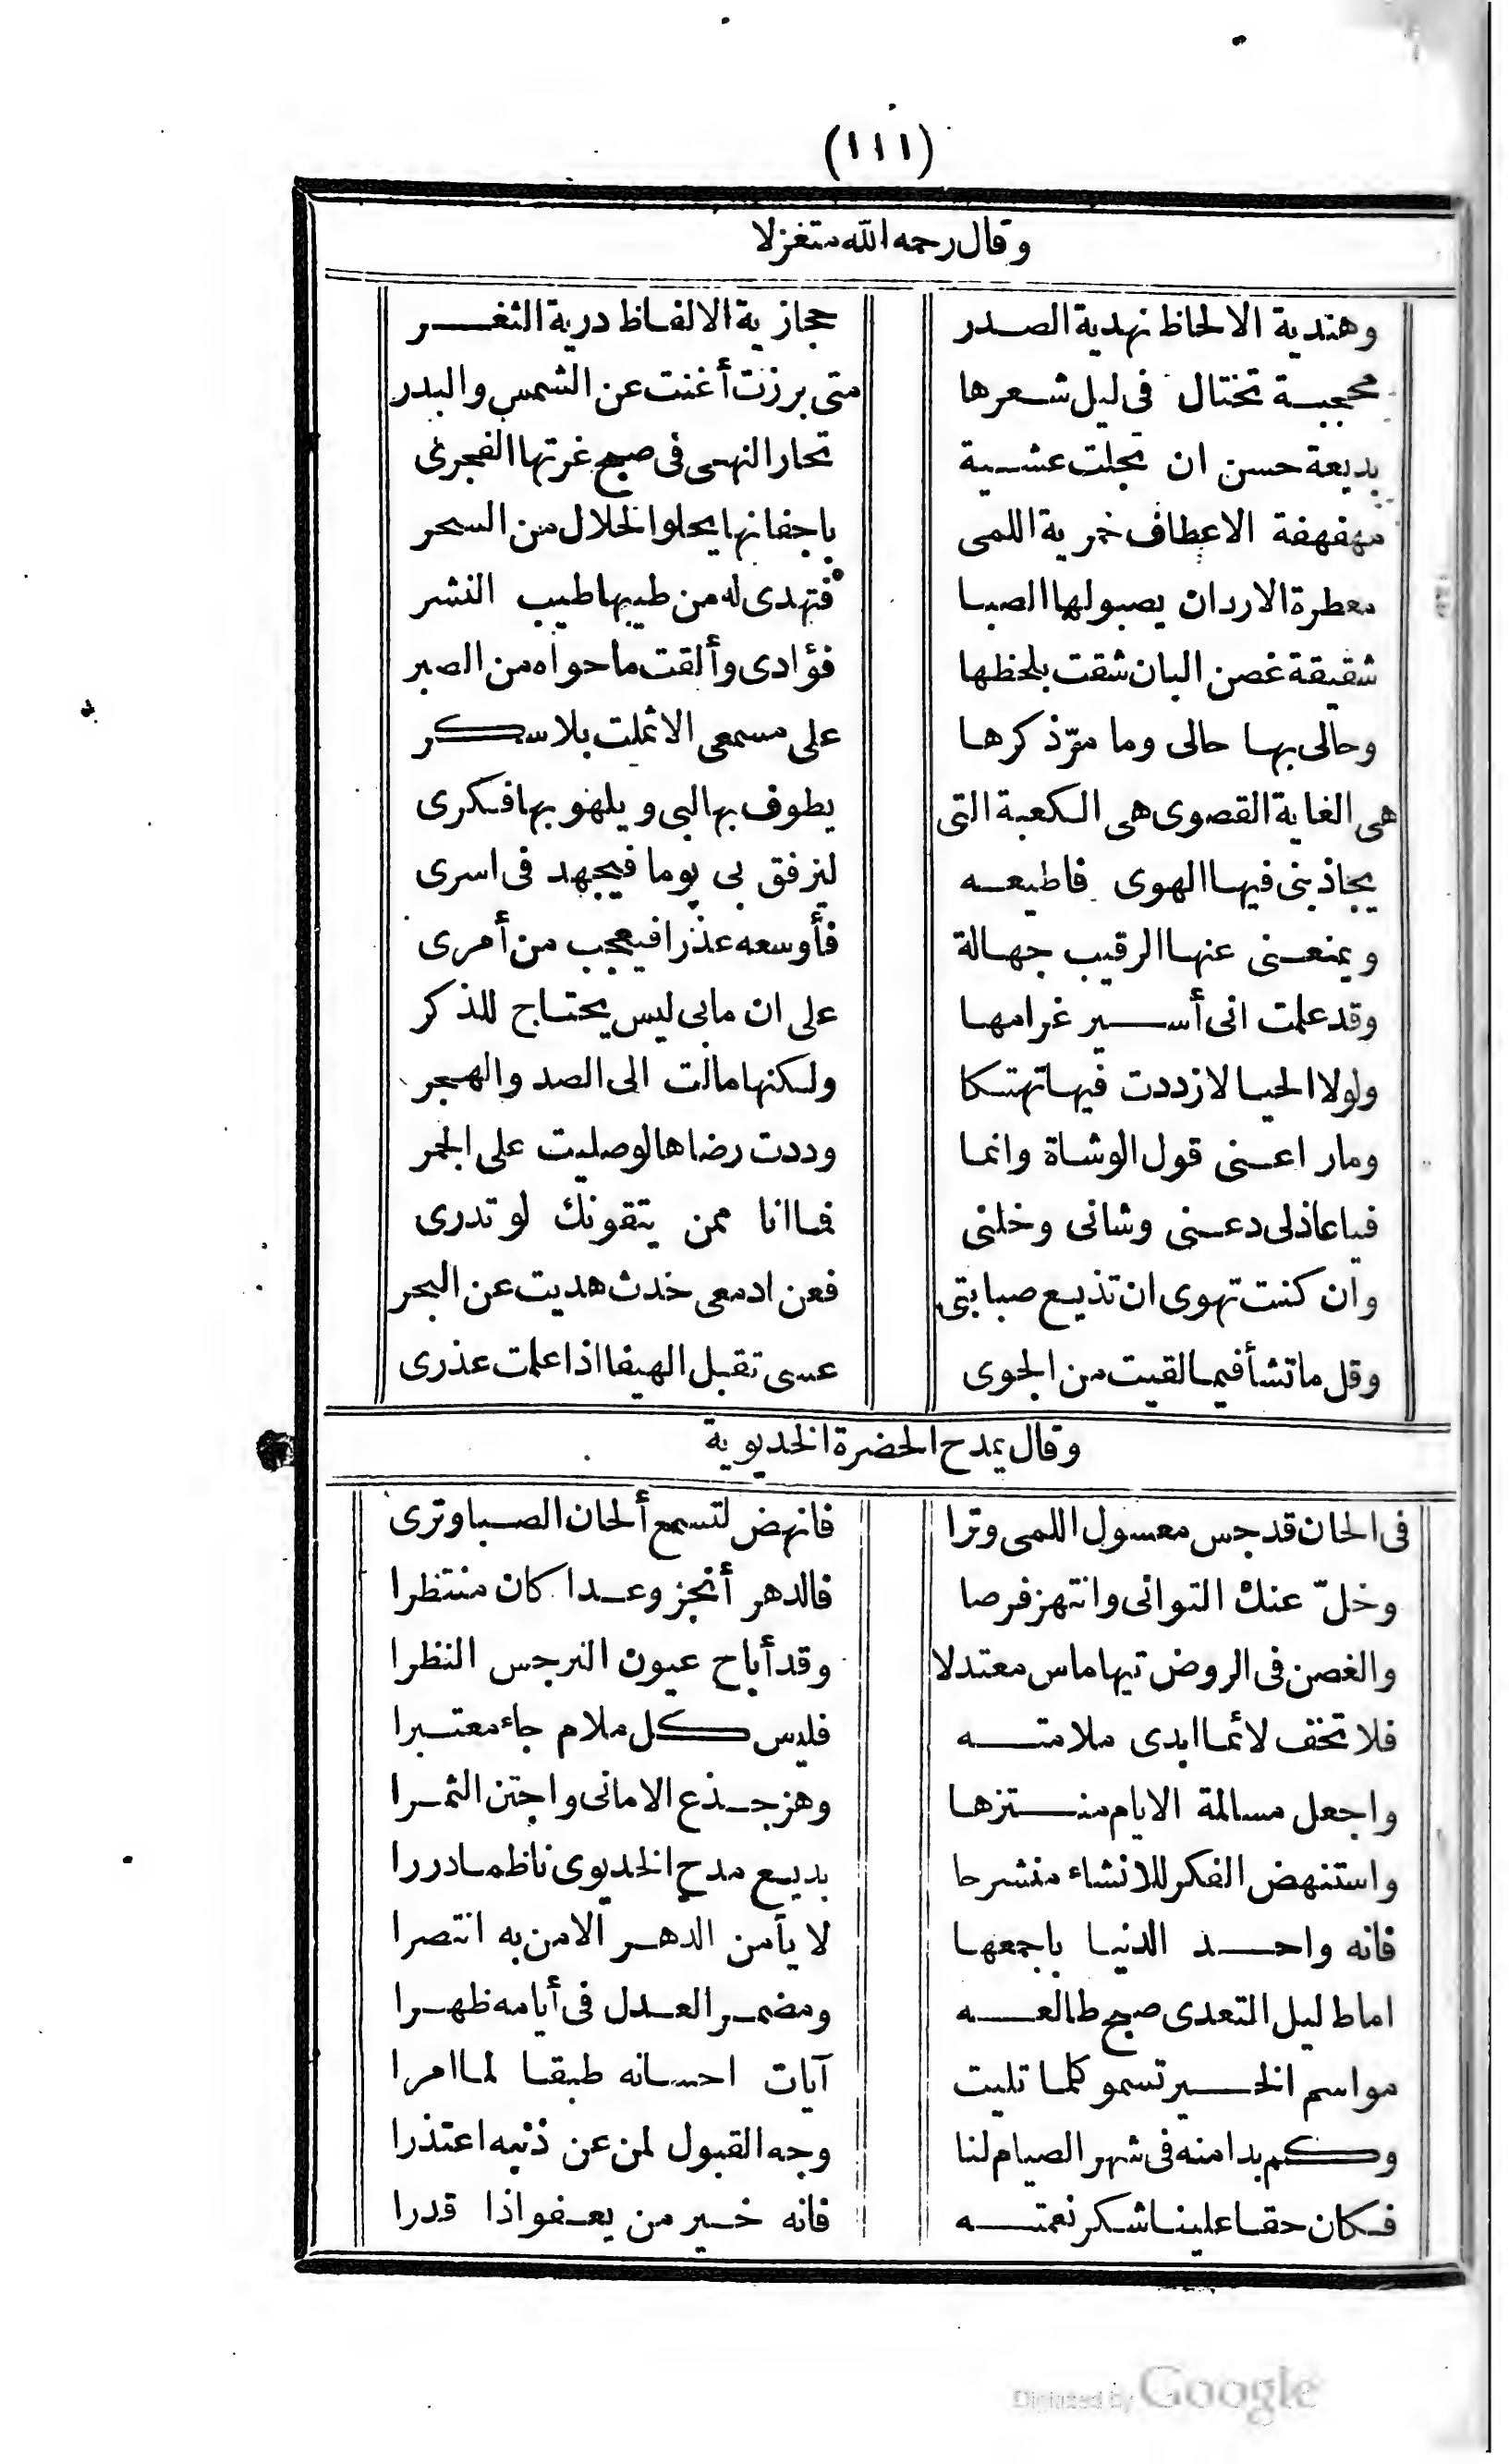 (١١١)
وقال رحمه الله متغزلا
وهندية الالحاظ نهدية الصدر حجازية الالفاظ درية الثغر
محجبة تختال فى ليل شعرها متى برزت أغنت عن الشمس والبدر
بديعة حسن ان تجلت عشية تحار النهى فى صبح غرتها الفجرى
مهفهفة الاعطاف خمرية اللمى باجفانها يحلو الحلال من السحر
معطرة الاردان يصبولها الصبا فتهدى له من طيبها طيب النشر
شقيقة غصن البان شقت بلحظها فؤادى وألقت ما حواه من الصبر
وحالى بها حالى وما مرّ ذكرها على مسمعى الا ثملت بلا سكر
هى الغاية القصوى هى الكعبة التى يطوف بها لبى ويلهو بها فكرى
يجاذبنى فيها الهوى فاطيعه ليرفق بى يوما فيجهد فى اسرى
ويمنعنى عنها الرقيب جهالة فأوسعه عذرا فيعجب من أمرى
وقد علمت انى أسير غرامها على ان مابى ليس يحتاج للذكر
ولولا الحيا لازددت فيها تهتكا ولكنها مالت الى الصد والهجر
وما راعنى قول الوشاة وانما وددت رضاها لو صليت على الجمر
فيا عاذلى دعنى وشانى وخلنى فما انا ممن يتقونك لو تدرى
وان كنت تهوى ان تذيع صبابتى فعن ادمعى خدث هديت عن البحر
وقل ما تشأ فيما لقيت من الجوى عسى تقبل الهيفا اذا علمت عذرى
وقال يمدح الحضرة الخديوية
فى الحان قد جس معسول اللمى وترا فانهض لتسمع ألحان الصبا وترى
وخلّ عنك التوانى وانتهز فرصا فالدهر أنجز وعدا كان منتظرا
والغصن فى الروض تيها ماس معتدلا وقد أباح عيون النرجس النظرا
فلا تخف لائما ابدى ملامته فليس كل ملام جاء معتبرا
واجعل مسالمة الايام منتزها وهز جذع الامانى واجتن الثمرا
واستنهض الفكر للانشاء منشرحا بديع مدح الخديوى ناظما دررا
فانه واحد الدنيا باجمعها لا يأمن الدهر الا من به انتصرا
اماط ليل التعدى صبح طالعه ومضمر العدل فى أيامه ظهرا
مواسم الخير تسمو كلما تليت آيات احسانه طبقا لما امرا
وكم بدا منه فى شهر الصيام لنا وجه القبول لمن عن ذنبه اعتذرا
فكان حقا علينا شكر نعمته فانه خير من يعفو اذا قدرا
Digitized by Google